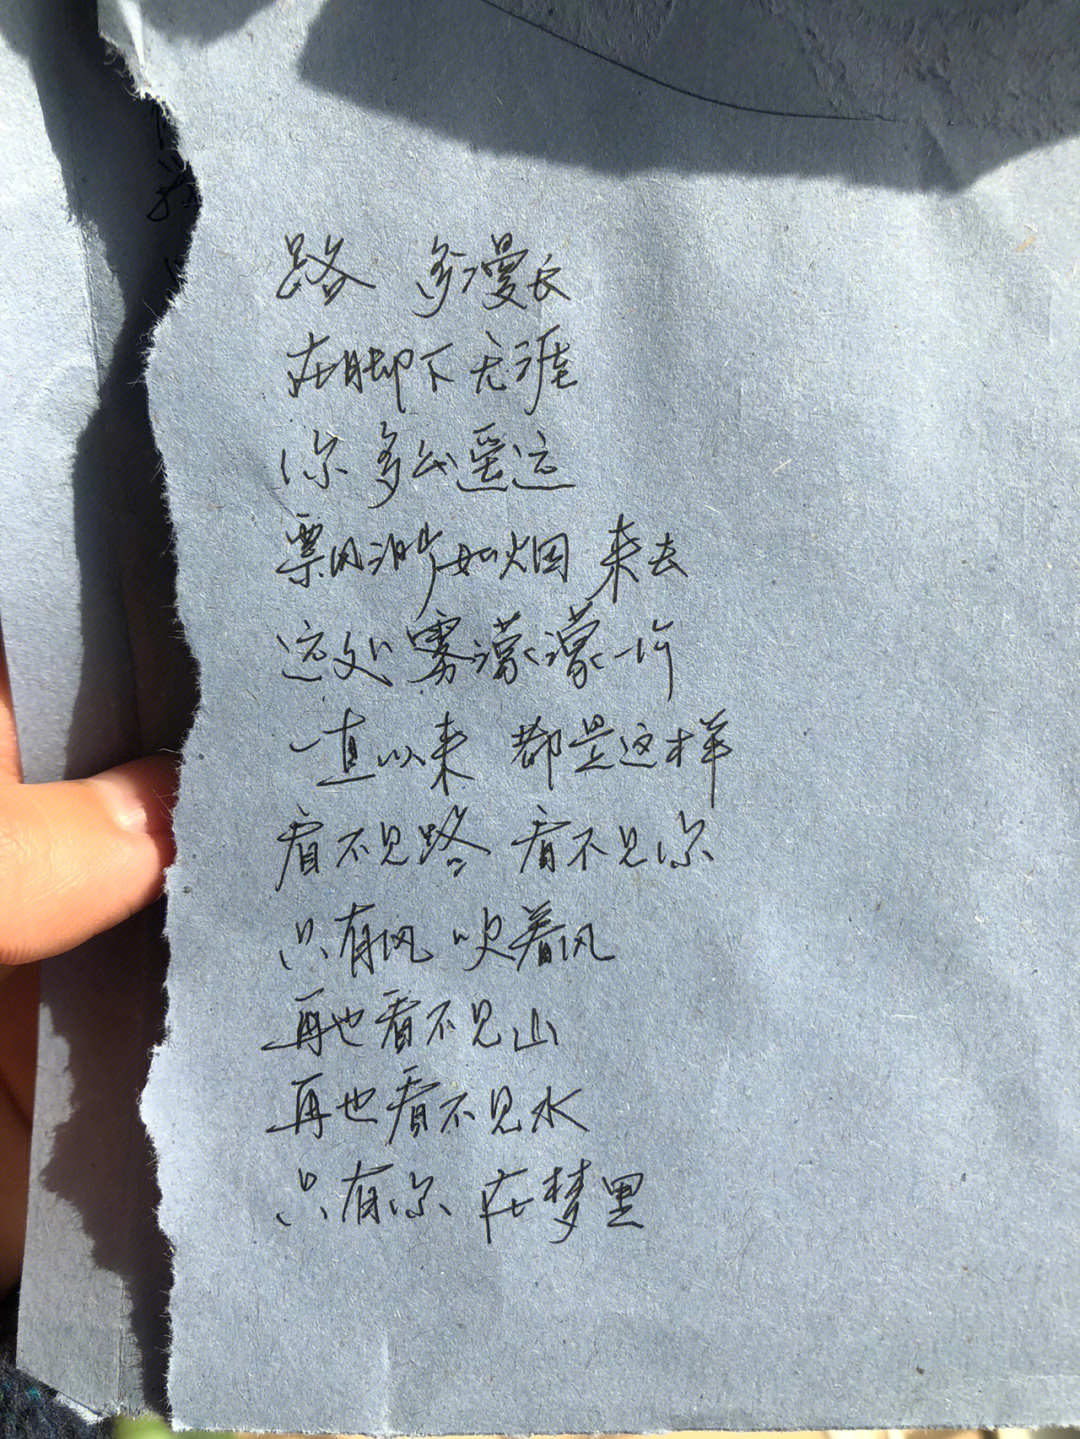 路 多漫长
在脚下无涯
你 多么遥远
飘渺如烟 来去
远处雾濛濛一片
一直以来 都是这样
看不见路 看不见你
只有风 吹着风
再也看不见山
再也看不见水
只有你 在梦里